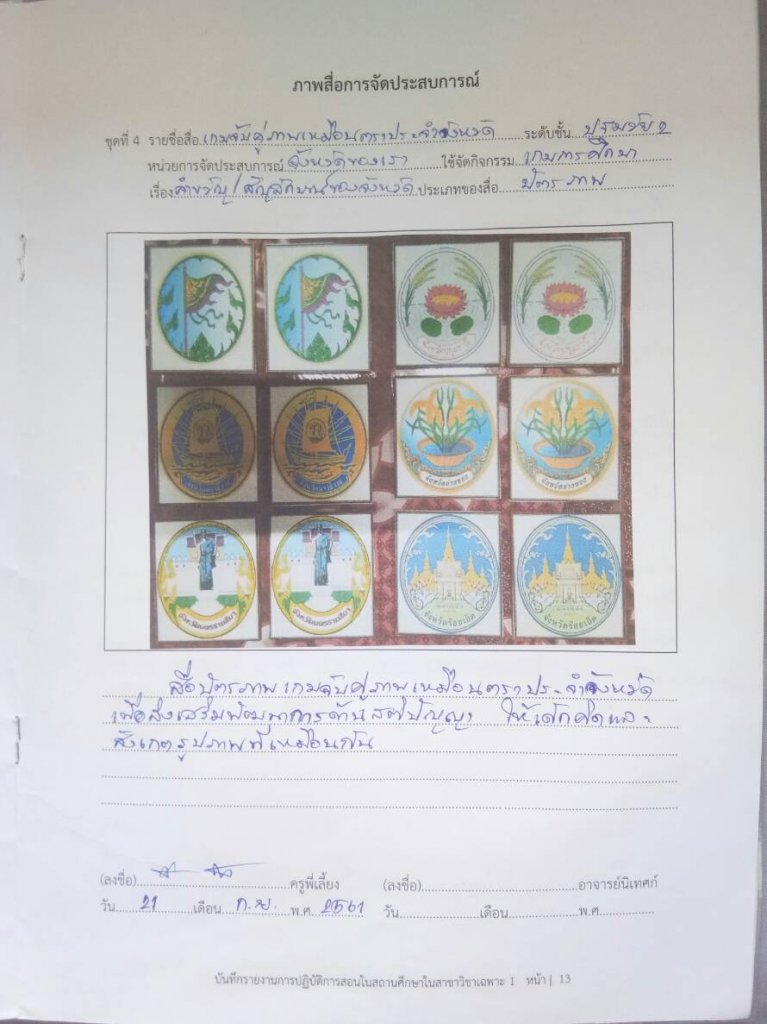 ภาพสื่อการจัดประสบการณ์
ชุดที่ 4 รายชื่อสื่อ เกมจับคู่ภาพเหมือนตราประจำจังหวัด ระดับชั้น ปฐมวัย 2
หน่วยการจัดประสบการณ์ จังหวัดของเรา ใช้จัดกิจกรรม เกมการศึกษา
เรื่อง คำขวัญ/สัญลักษณ์ของจังหวัด ประเภทของสื่อ บัตรภาพ
จังหวัดอ่างทอง จังหวัดอ่างทอง
จังหวัดนครราชสีมา จังหวัดนครราชสีมา จังหวัดร้อยเอ็ด จังหวัดร้อยเอ็ด
สื่อบัตรภาพเกมจับคู่ภาพเหมือนตราประจำจังหวัด
เพื่อส่งเสริมพัฒนาการด้านสติปัญญา ให้เด็กคิดและ
สังเกตรูปภาพที่เหมือนกัน
(ลงชื่อ) ครูพี่เลี้ยง (ลงชื่อ) อาจารย์นิเทศก์
วัน 21 เดือน ก.ย. พ.ศ 2561 วัน เดือน พ.ศ
บันทึกรายงานการปฏิบัติการสอนในสถานศึกษาในสาขาวิชาเฉพาะ 1 หน้า | 13